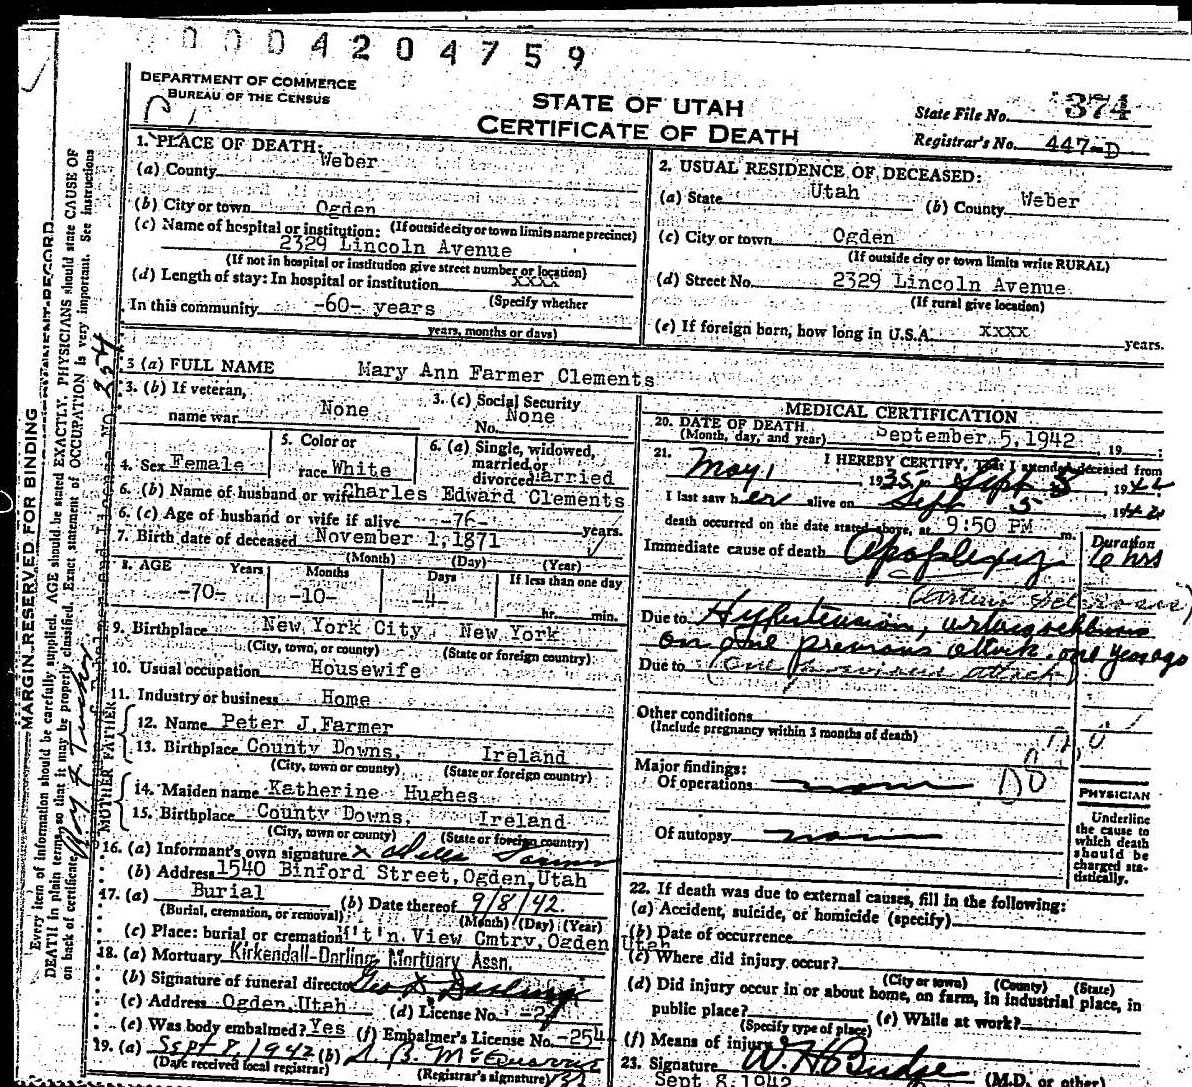 0004204759
DEPARTMENT OF COMMERCE
BUREAU OF THE CENSUS
STATE OF UTAH
CERTIFICATE OF DEATH
State File No. 374
Registrar's No. 447-D
1. PLACE OF DEATH:
(a) County Weber
(b) City or town Ogden
(If outside city or town limits name precinct)
(c) Name of hospital or institution:
2329 Lincoln Avenue
(If not in hospital or institution give street number or location)
(d) Length of stay: In hospital or institution xxxx
(Specify whether
In this community -60- years
years, months or days)
2. USUAL RESIDENCE OF DECEASED:
(a) State Utah (b) County Weber
(c) City or town Ogden
(If outside city or town limits write RURAL)
(d) Street No. 2329 Lincoln Avenue
(If rural give location)
(e) If foreign born, how long in U.S.A. xxxx years.
3 (a) FULL NAME Mary Ann Farmer Clements
3. (b) If veteran,
name war None
3. (c) Social Security
No. None
4. Sex Female
5. Color or
race White
6. (a) Single, widowed,
married, or
divorced arried
6. (b) Name of husband or wife Charles Edward Clements
6. (c) Age of husband or wife if alive -76- years.
7. Birth date of deceased November 1, 1871
(Month) (Day) (Year)
8. AGE Years Months Days If less than one day
-70- -10- -4- hr. min.
9. Birthplace New York City, New York
(City, town, or county) (State or foreign country)
10. Usual occupation Housewife
11. Industry or business Home
FATHER
12. Name Peter J. Farmer
13. Birthplace County Downs, Ireland
(City, town or county) (State or foreign country)
MOTHER
14. Maiden name Katherine Hughes
15. Birthplace County Downs, Ireland
(City, town or county) (State or foreign country)
16. (a) Informant's own signature x Della Farmer
(b) Address 1540 Binford Street, Ogden, Utah
17. (a) Burial (b) Date thereof 9/8/42.
(Burial, cremation, or removal) (Month) (Day) (Year)
(c) Place: burial or cremation M't'n. View Cmtry, Ogden Utah
18. (a) Mortuary Kirkendall-Darling Mortuary Assn.
(b) Signature of funeral director Geo Darling
(c) Address Ogden, Utah (d) License No.
(e) Was body embalmed? Yes (f) Embalmer's License No. -254-
19. (a) Sept 8, 1942 (b)
(Date received local registrar) (Registrar's signature)
MEDICAL CERTIFICATION
20. DATE OF DEATH
(Month, day, and year) September 5, 1942, 19
21. I HEREBY CERTIFY, That I attended deceased from
May 1, 1935, Sept 5 1942
I last saw her alive on Sept 5, 1942
death occurred on the date stated above, at 9:50 PM m.
Immediate cause of death Apoplexy
Duration
6 hrs
(arterio sclerosis)
Due to Hypertension, arteriosclerosis
one previous attack. one year ago
Due to (One previous attack)
Other conditions
(Include pregnancy within 3 months of death)
Major findings:
Of operations none
Of autopsy none
PHYSICIAN
Underline
the cause to
which death
should be
charged sta-
tistically.
22. If death was due to external causes, fill in the following:
(a) Accident, suicide, or homicide (specify)
(b) Date of occurrence
(c) Where did injury occur?
(City or town) (County) (State)
(d) Did injury occur in or about home, on farm, in industrial place, in
public place? (e) While at work?
(Specify type of place)
(f) Means of injury
23. Signature W. H. Budge (M.D. or other)
Sept 8, 1942
MARGIN RESERVED FOR BINDING
Every item of information should be carefully supplied. AGE should be stated EXACTLY. PHYSICIANS should state CAUSE OF
DEATH in plain terms, so that it may be properly classified. Exact statement of OCCUPATION is very important. See instructions
on back of certificate.
254